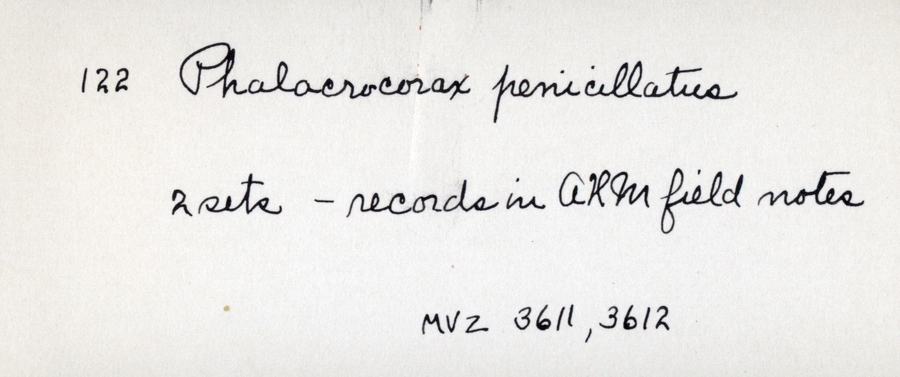 122 Phalacrocorax penicillatus
2 sets - records in AHM field notes
MVZ 3611, 3612